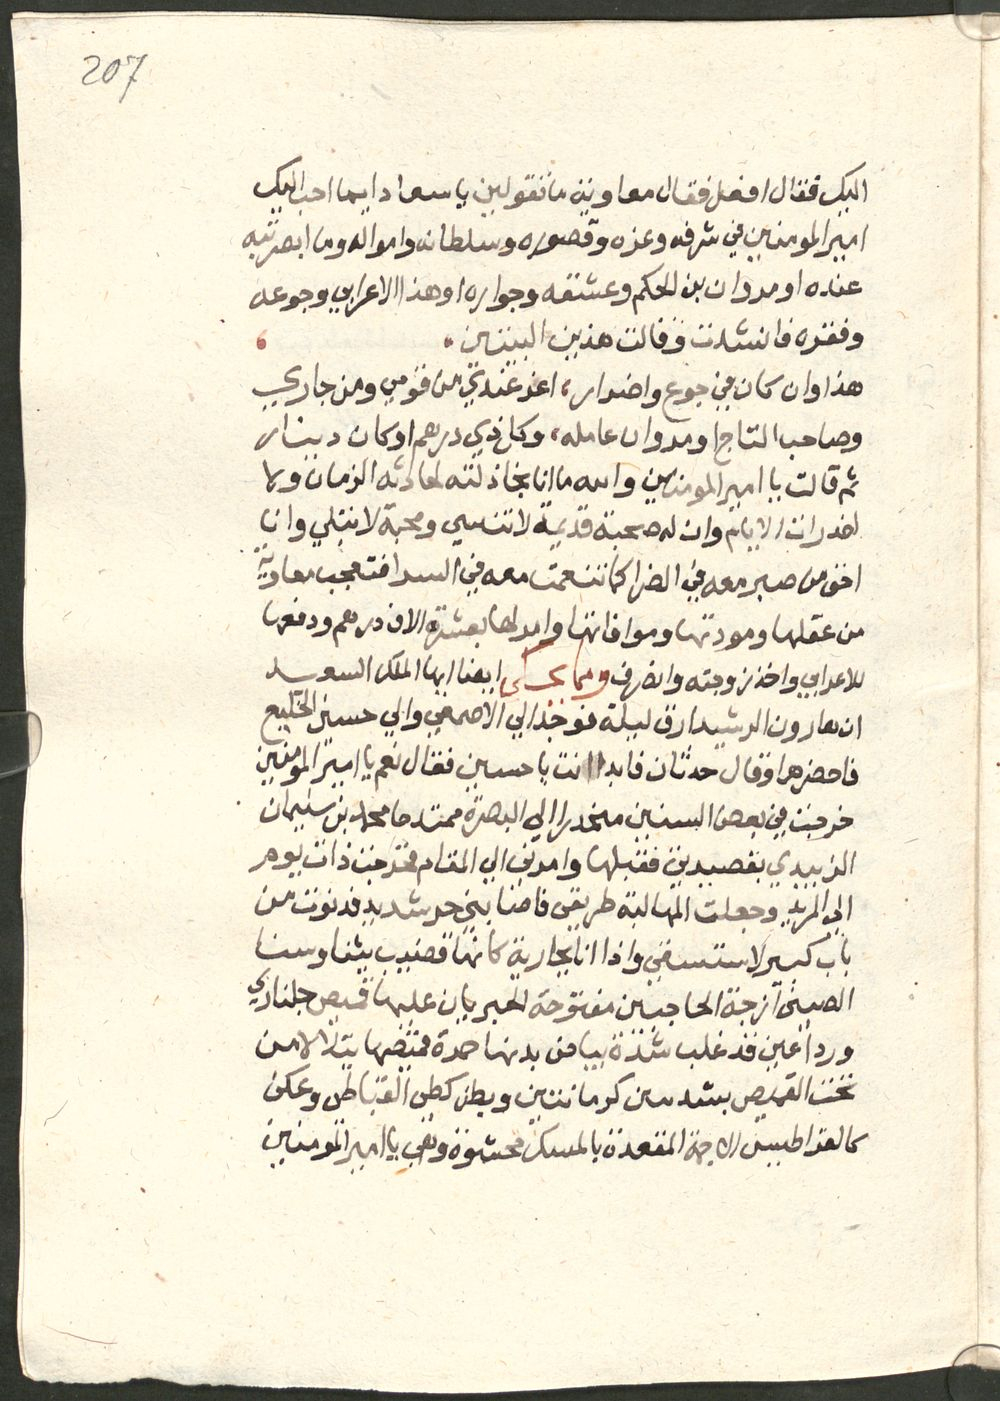 207
اليك فقال افعل فقال معاوية ما تقولين يا سعاد ايما احب اليك
امير المومنين في شرفه وعزه وقصوره وسلطانه وامواله وما ابصرتيه
عنده او مروان بن الحكم وعشقه وجواره او هذا الاعرابي وجوعه
وفقره فانشدت وقالت هذين البيتين
هذا وان كان في جوع واضرار، اعز عندي من قومي ومن جاري
وصاحب التاج او مروان عامله، وكل ذي درهم او كان دينار
ثم قالت يا امير المومنين والله ما انا بخاذلته لحادثه الزمان ولا
لغدرات الايام وان له صحبة قديمة لا تنسي ومحبة لا تبلي وانا
احق من صبر معه في الضرا كما تنعمت معه في السرا فتعجب معاوية
من عقلها ومودتها وموافاتها وامر لها بعشرة الاف درهم ودفعها
للاعرابي واخذ زوجته وانصرف ومما يحكي ايضا ايها الملك السعيد
ان هارون الرشيد ارق ليلة فوجه الي الاصمعي والي حسين الخليع
فاحضرهما وقال حدثان فابدا انت يا حسين فقال نعم يا امير المومنين
خرجت في بعض السنين منحدرا الي البصرة ممتدحا محمد بن سليمان
الزبيدي بقصيدين فقبلها وامرني الي المقام فخرجت ذات يوم
الي المربد وجعلت المهالبة طريقي فاصابني حر شديد فدنوت من
باب كبير لاستسقي واذا انا بجارية كانها قضيب يثنا وسنا
العينين ازجة الحاجبين مفتوحة الجبربان عليها قميص جلناري
وردا عين قد غلب شدة بياض بدنها حمرة قميصها يتلالا من
تحت القميص بثديين كرمانتين وبطن كطي القباطي وعكن
كالقراطيس الاجمة المقعدة بالمسك محشوة وهي يا امير المومنين